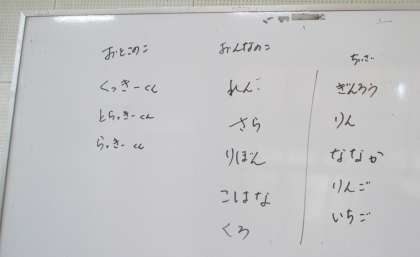 おとこのこ
くっきーくん
とらっきーくん
らっきーくん
おんなのこ
れんこ
さら
りぼん
こはな
くろ
ちっさい
ぎんろう
りん
ななか
りんご
いちご